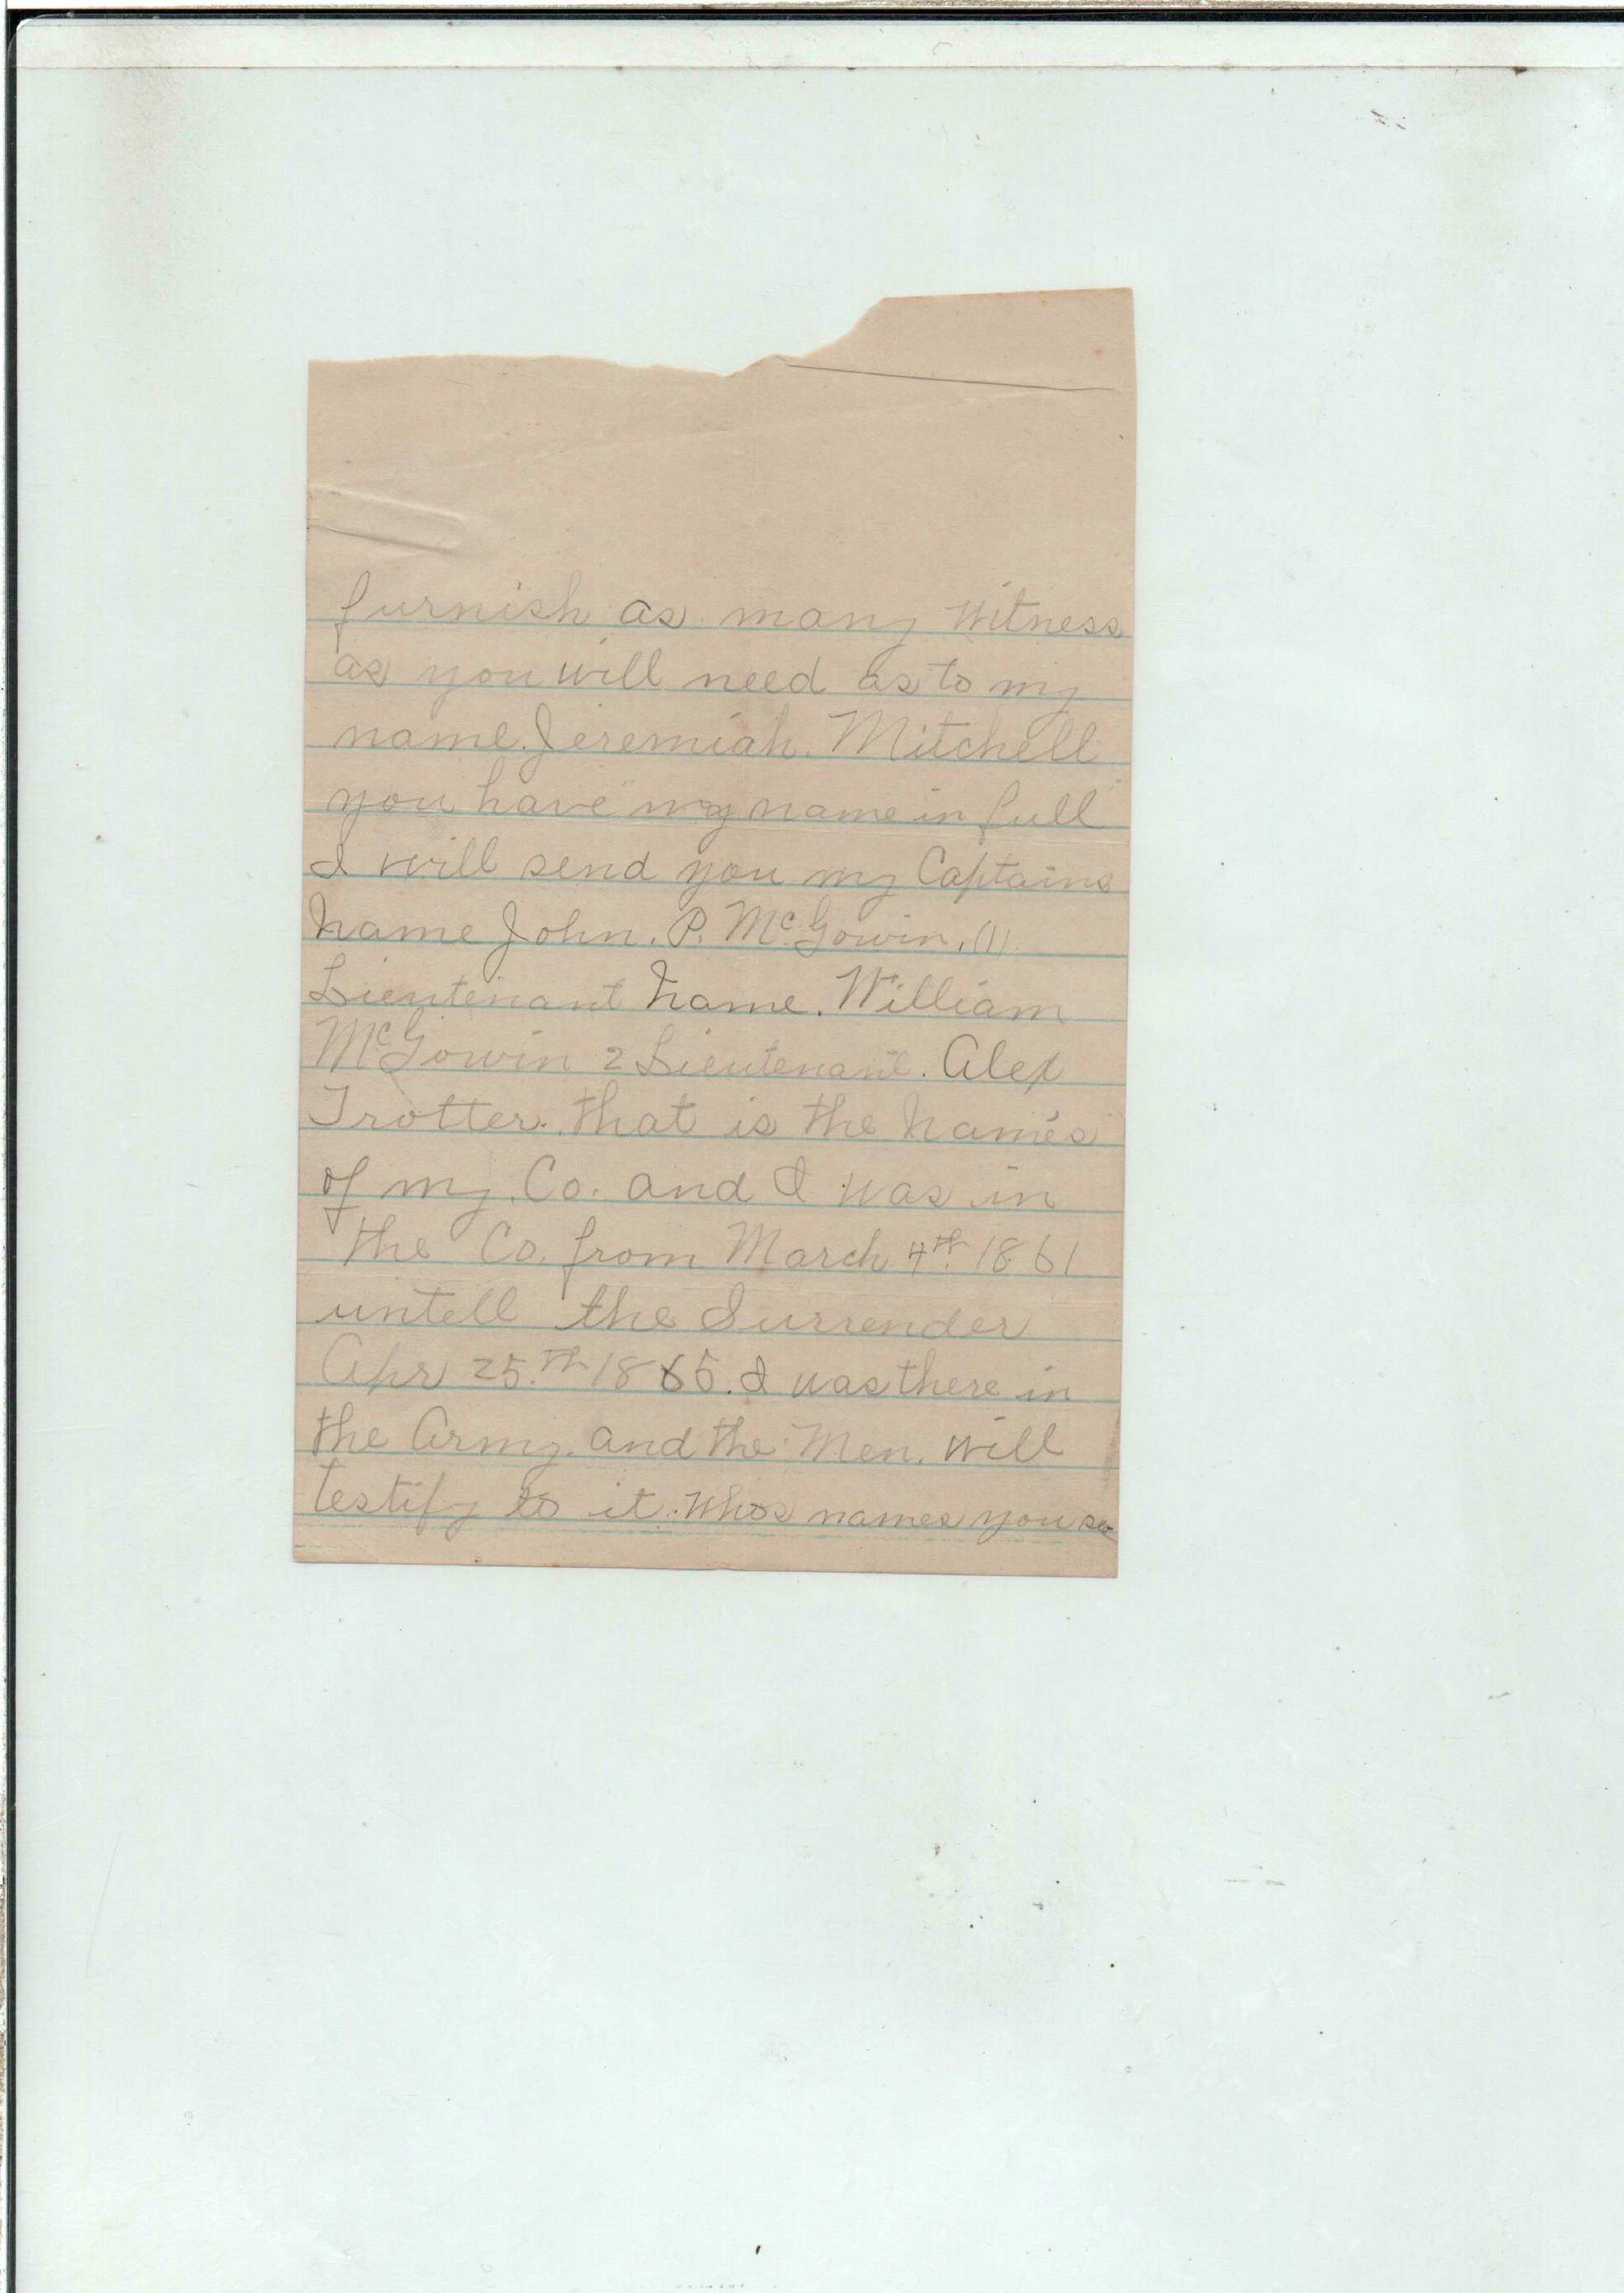 furnish as many witness
as you will need as to my
name. Jeremiah. Mitchell
you have "my name in full"
I will send you my Captains
name John. P. McGowin. (1)
Lieutenant name. William
McGowin 2 Lieutenant. Alex
Trotter. that is the names
of my. Co. and I was in
the Co. from March 4th. 1861
untell the Surrender
Apr 25.th 1865. I was there in
the Army. and the Men. will
testify to it. Whos names you se